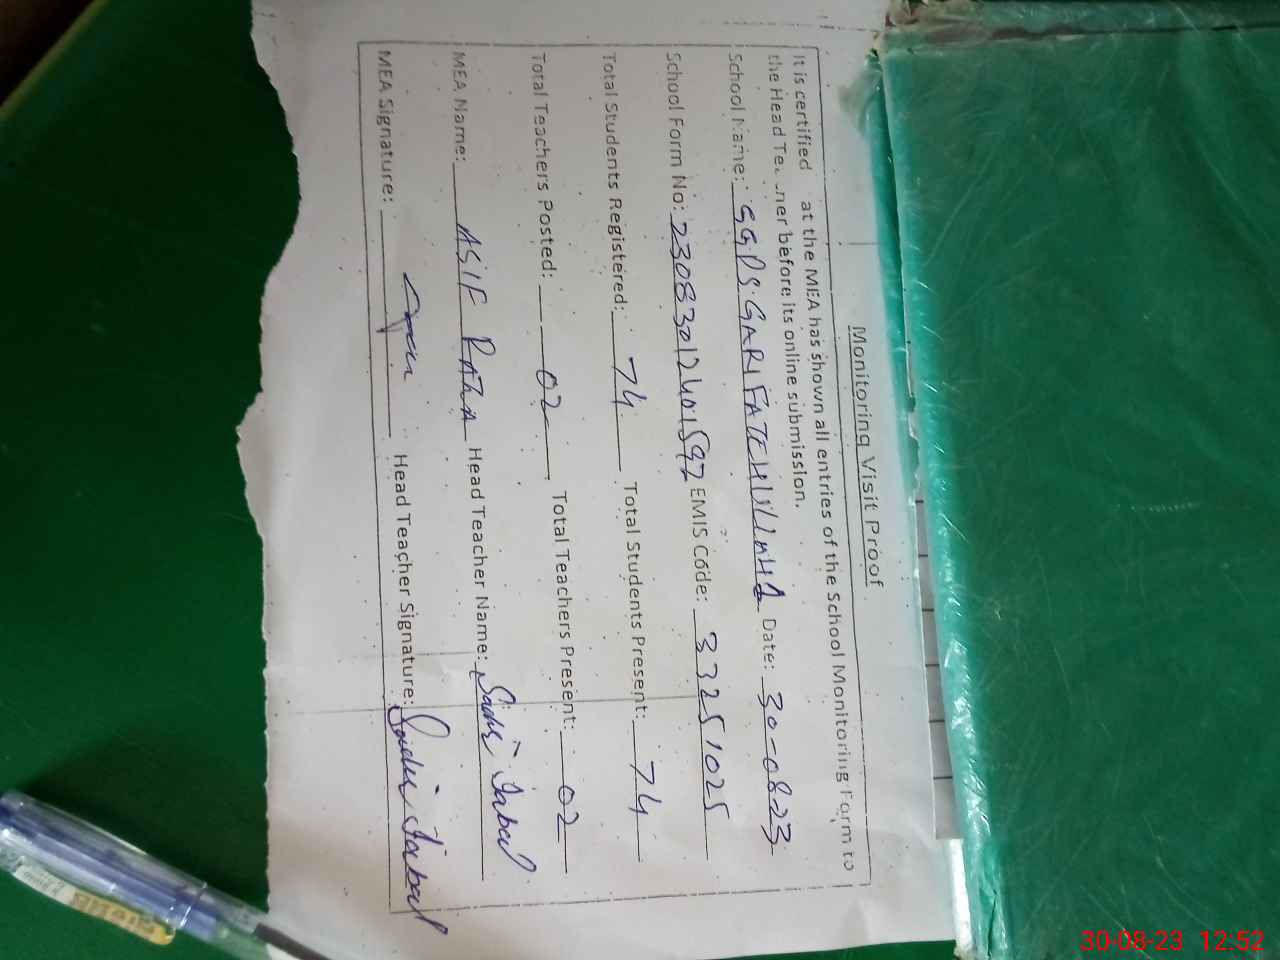 Monitoring Visit Proof
It is certified at the MEA has shown all entries of the School Monitoring Form to
the Head Te ner before its online submission.
School Name: GGPS GARI FATEHULLAHA Date: 30-08-23
School Form No: 23083012401592 EMIS Code: 33251025
Total Students Registered: 74 Total Students Present: 74
Total Teachers Posted: 02 Total Teachers Present: 02
MEA Name: ASIF RAZA Head Teacher Name: Sadia Iqbal
MEA Signature: Head Teacher Signature: Sadia Iqbal
30-08-23 12:52